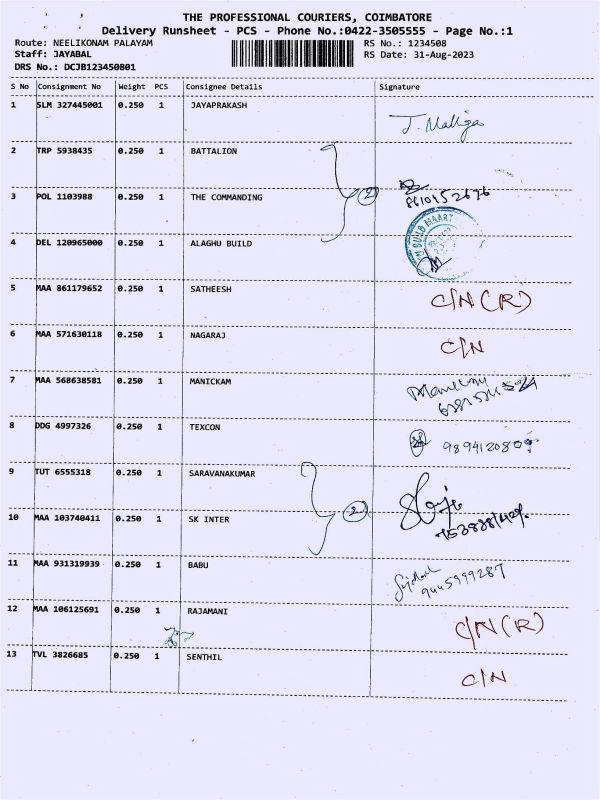 THE PROFESSIONAL COURIERS, COIMBATORE
Delivery Runsheet - PCS - Phone No.:0422-3505555 - Page No.:1
Route: NEELIKONAM PALAYAM RS No.: 1234508
Staff: JAYABAL RS Date: 31-Aug-2023
DRS No.: DCJB123450801
S No Consignment No Weight PCS Consignee Details Signature
1 SLM 327445001 0.250 1 JAYAPRAKASH J. Malliga
2 TRP 5938435 0.250 1 BATTALION
2
3 POL 1103988 0.250 1 THE COMMANDING 8610152676
4 DEL 120965000 0.250 1 ALAGHU BUILD BUILD MAART
5 MAA 861179652 0.250 1 SATHEESH C/N (R)
6 MAA 571630118 0.250 1 NAGARAJ C/N
7 MAA 568638581 0.250 1 MANICKAM
8 DDG 4997326 0.250 1 TEXCON 9894120809
9 TUT 6555318 0.250 1 SARAVANAKUMAR
2
10 MAA 103740411 0.250 1 SK INTER
11 MAA 931319939 0.250 1 BABU 9445999287
12 MAA 106125691 0.250 1 RAJAMANI C/N (R)
13 TVL 3826685 0.250 1 SENTHIL C/N